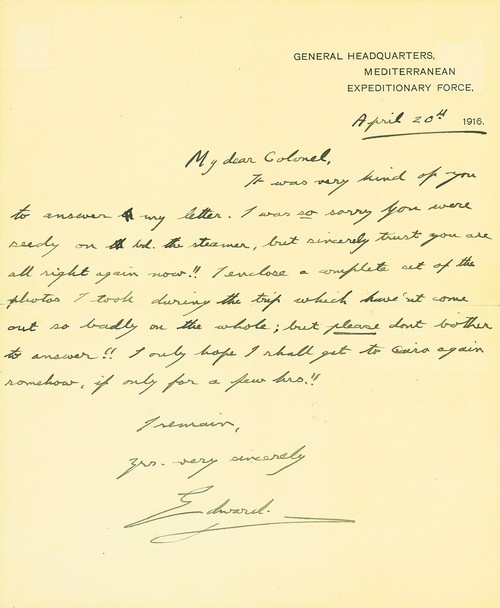 GENERAL HEADQUARTERS,
MEDITERRANEAN
EXPEDITIONARY FORCE,
April 20th 1916.
My dear Colonel,
It was very kind of you
to answer my letter. I was so sorry you were
seedy on bd. the steamer, but sincerely trust you are
all right again now!! I enclose a complete set of the
photos I took during the trip which have'nt come
out so badly on the whole; but please dont bother
to answer!! I only hope I shall get to Cairo again
somehow, if only for a few hrs.!!
I remain,
yrs. very sincerely
Edward.